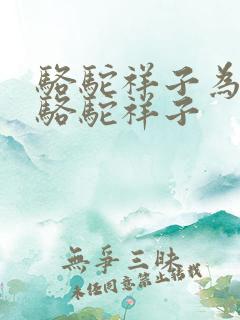 駱駝祥子為
駱駝祥子
無爭三昧
未经同意禁止搭我